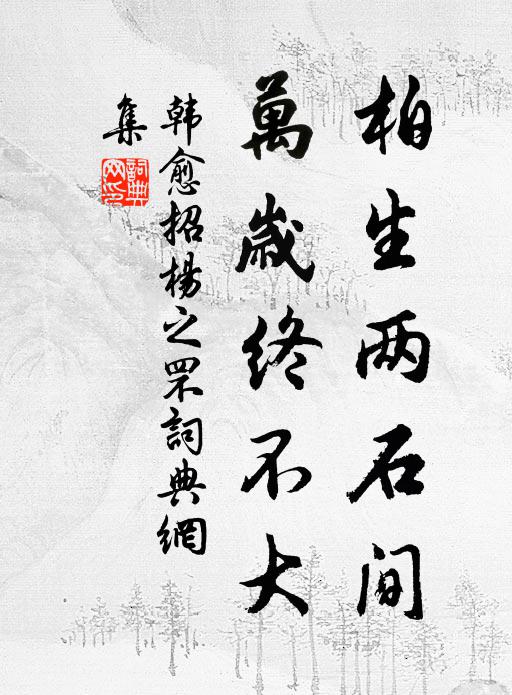 柏生两石间
萬歳终不大
韩愈招楊之罘詞典網
集
詞典网印